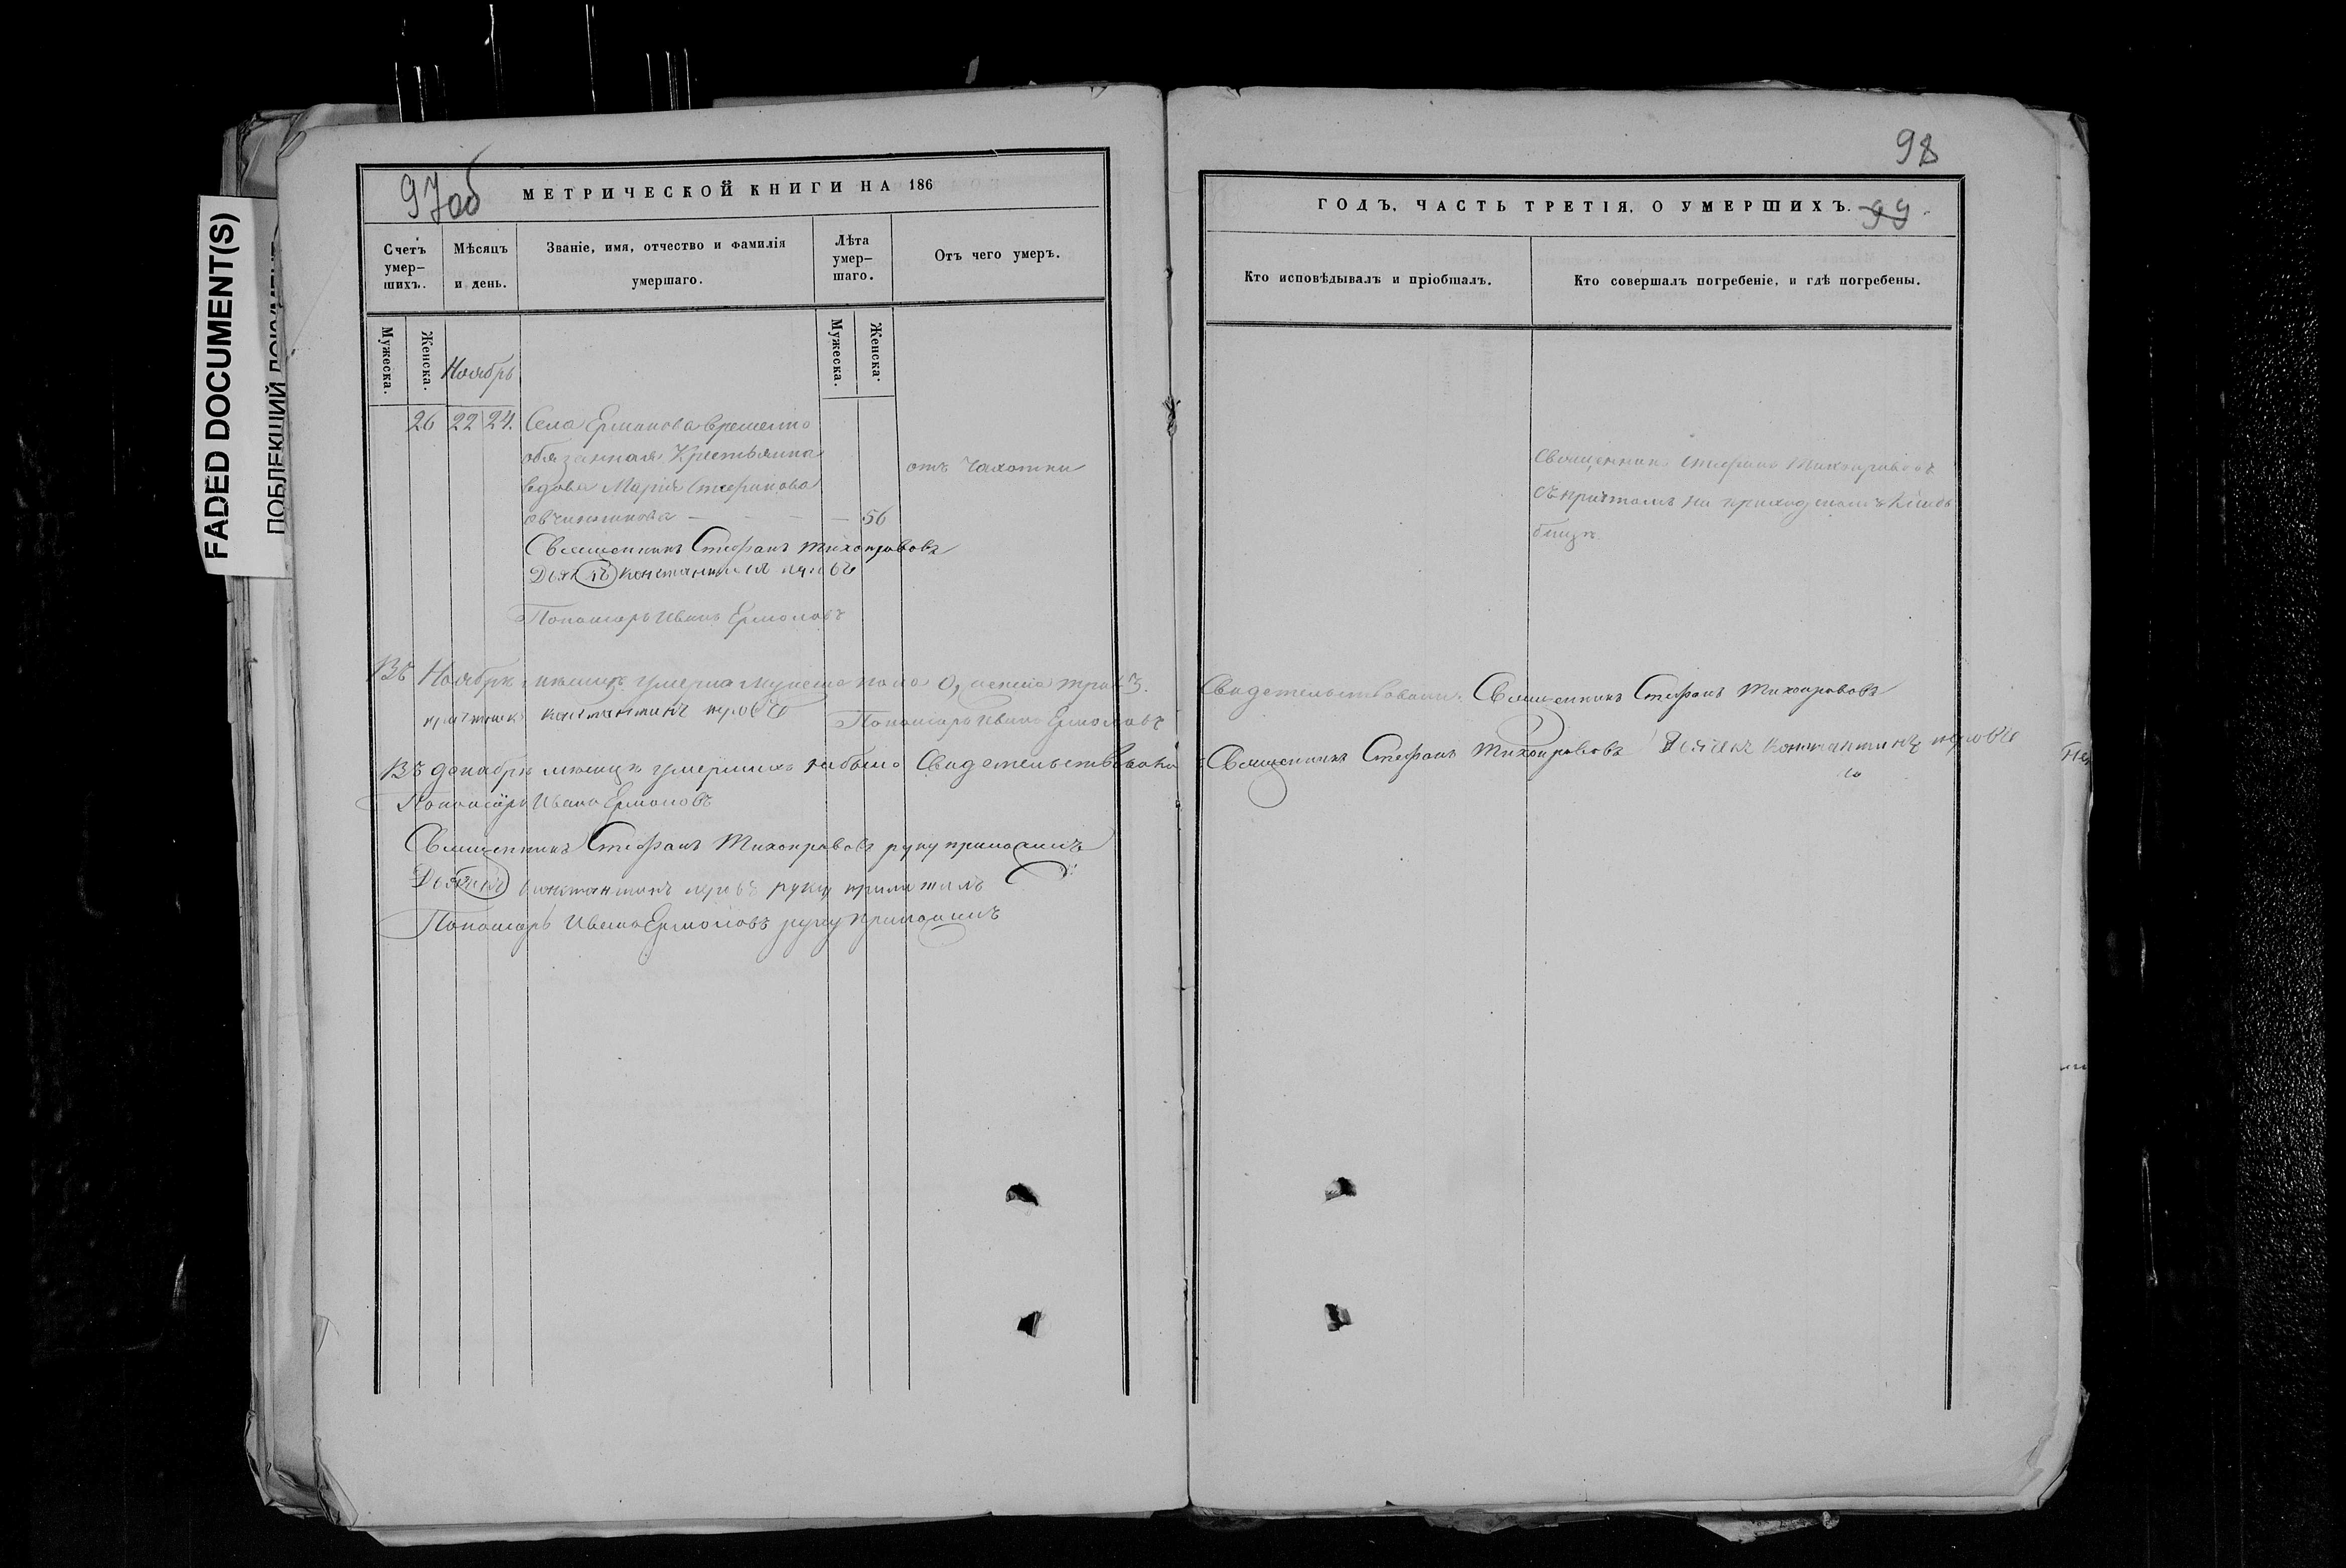 FADED DOCUMENT(S)
97об
МЕТРИЧЕСКОЙ КНИГИ НА 186
Счетъ умер-шихъ.
Мѣсяцъ и день.
Званіе, имя, отчество и фамилія умершаго.
Лѣта умер-шаго.
Отъ чего умеръ.
Мужеска.
Женска.
Ноябрь
Мужеска.
Женска.
26 22 24. Села Ерманова временно
обязанная Крестьянка
вдова Марія Стефанова
Овчинникова — 56
отъ чахотки
Священникъ Стефанъ Тихонравовъ
Дьячекъ Константинъ
Пономарь Иванъ Ермоловъ
Въ Ноябрѣ мѣсяцѣ умерло мужеска пола 0, женска три 3.
Константинъ
Пономарь Иванъ Ермоловъ
Въ декабрѣ мѣсяцѣ умершихъ не было Свидетельствовали
Пономарь Иванъ Ермоловъ
Священникъ Стефанъ Тихонравовъ руку приложилъ
Дьячекъ Константинъ руку приложилъ
Пономарь Иванъ Ермоловъ руку приложилъ
98
ГОДЪ, ЧАСТЬ ТРЕТІЯ, О УМЕРШИХЪ.
99
Кто исповѣдывалъ и пріобщалъ.
Кто совершалъ погребеніе, и гдѣ погребены.
Священникъ Стефанъ Тихонравовъ
съ причтомъ на приходскомъ кладъ
бищѣ
Свидетельствовали: Священникъ Стефанъ Тихонравовъ
Священникъ Стефанъ Тихонравовъ Дьячекъ Константинъ